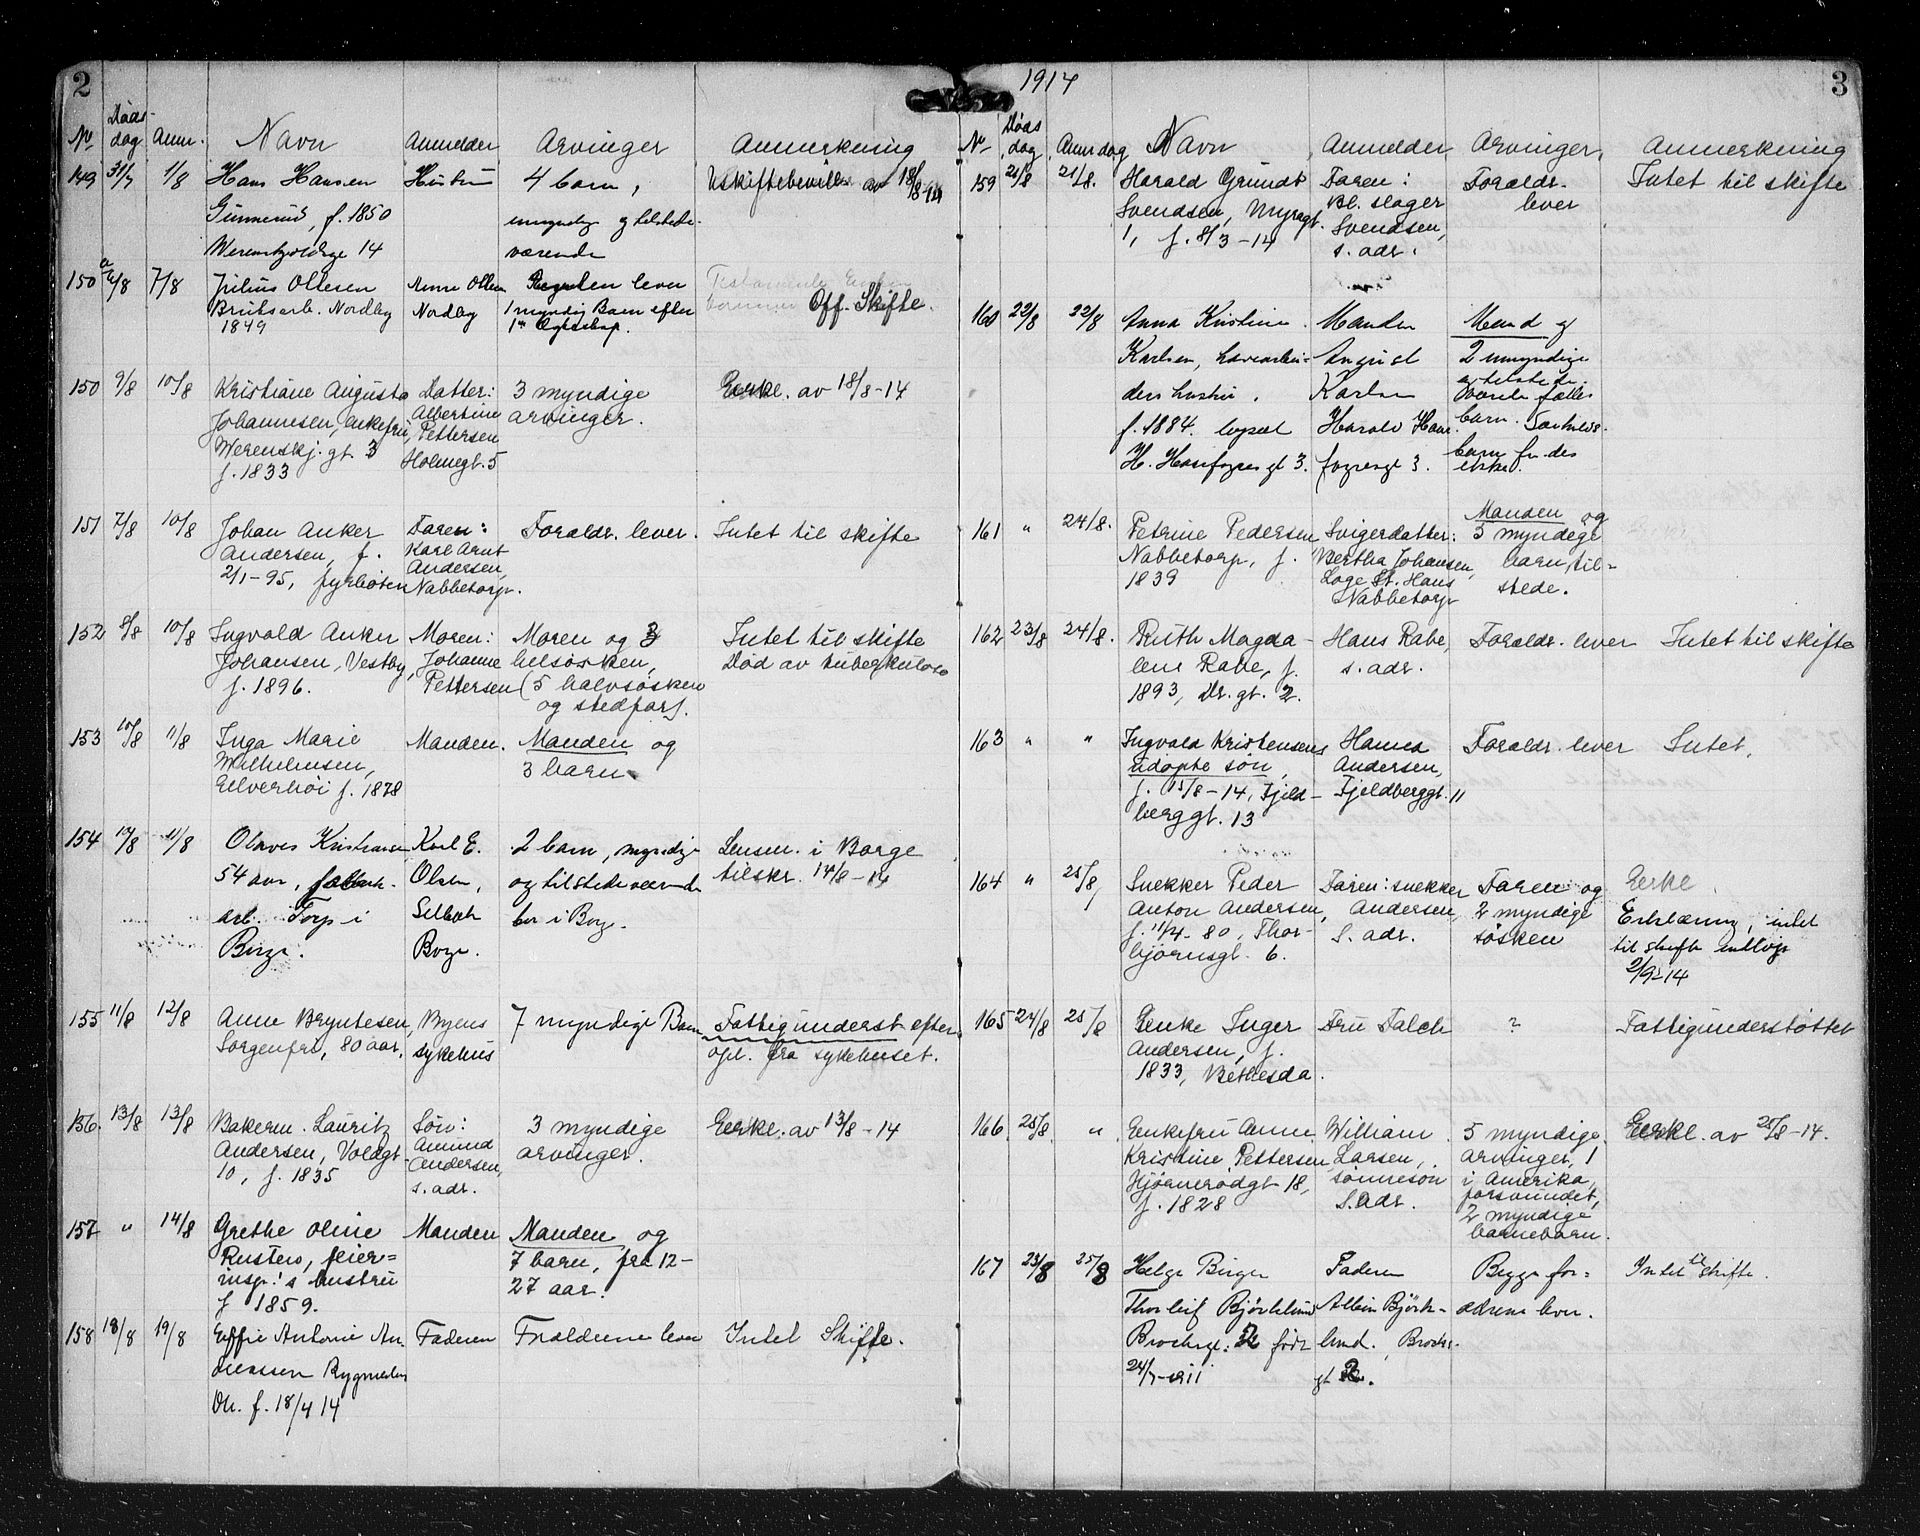 2
Nr. Dødsdag Anm. Navn Anmelder Arvinger Anmerkning
149 31/7 1/8 Hans Hansen Hustru 4 barn, Uskiftebevill. av 18/8-14
Gunnerud, f. 1850 umyndig og tilstede-
14 værende
150a 6/8 7/8 Julius Ollesen Anne Ollesen lever Off. Skifte.
Bruksarb. Nordby Nordby 1 myndig Barn efter
1849 1ste Egteskap.
150 9/8 10/8 Kristiane Augusta Datter: 3 myndige Eerkl. av 18/8-14
Johannesen, enkefru, Albertine arvinger.
Werenskj. gt. 3 Pettersen
f. 1833 Holmegt. 5
151 7/8 10/8 Johan Anker Faren: Foraldr. lever. Intet til skifte
Andersen, f. Karl Arnt
2/1-95, fyrbøter Andersen,
Nabbetorp.
152 8/8 10/8 Ingvald Anker Moren: Moren og 3 Intet til skifte
Johansen, Vestby, Johanne helsøsken, Død av tuberkulose
f. 1896. Pettersen (5 halvsøsken
og stedfar).
153 10/8 11/8 Inga Marie Manden. Manden og
Wilhelmsen, 3 barn
Eilverhøi f. 1878
154 10/8 11/8 Olaves Kristiansen Karl E. 2 barn, myndige Lensm. i Borge
54 aar, fabrik- Olsen, og tilstedeværende tilskr. 14/8-14
arb. Torp i Selbak bor i Borge.
Borge. Borge.
155 11/8 12/8 Anne Bryntesen, Byens 7 myndige Barn Fattigunderst. efter
Sorgenfri, 80 aar, sykehus opl. fra sykehuset.
156. 13/8 13/8 Bakerm. Lauritz Søn: 3 myndige Eerkl. av 13/8-14
Andersen, Voldgt. Amund arvinger.
10, f. 1835 Andersen,
s. adr.
157 " 14/8 Grethe Oline Manden Manden og
Rusten, feier= 7 barn, fra 12-
insp.'s hustru 27 aar.
f 1859.
158 18/8 19/8 Effie Antonie An- Faderen Forældrene lever Intet Skifte.
dreassen
f. 18/4 14
1914
3
Nr. Døds dag Anm dag Navn Anmelder Arvinger Anmerkning
159 21/8 21/8. Harald Grundt Faren: Foraldr. Intet til skifte
Svendsen, Myragt. Bl. slager lever
1, f. 8/3-14 Svendsen,
s. adr.
160 22/8 22/8 Anna Kristine Manden Mand og
Karlsen, August 2 umyndige
ders hustru. Karlsen og tilstede-
værende fælles
f. 1884. Harald Haar- barn. Særkuls-
H. Haarfagres gt 3. fagresgt 3. barn
161 " 24/8. Petrine Pedersen Svigerdatter: Manden og
Nabbetorp, f. Bertha Johansen, 5 myndige
1839 Loge St. Hans barn, til-
Nabbetorp stede.
162 23/8 24/8. Ruth Magda- Hans Rabe, Foraldr. lever Intet til skifte
lene Rabe, f. s. adr.
1893, Dr. gt. 2.
163 " " Ingvald Kristensens Hanna Foraldr. lever Intet.
udøpte søn, Andersen,
f. 15/8-14, Fjeld- Fjeldberggt. 11
berggt. 13
164 " 25/8, Snekker Peder Faren: snekker Faren og Eerkl.
Anton Andersen, Andersen, 2 myndige Erklæring, intet
f. 11/4-80, Thor- S. adr. søsken til skifte
bjørnsgt. 6. 2/9-14
165 24/8 25/8 Enke Inger Fru Falch ? Fattigunderstøttet
Andersen, f.
1833, Bethesda.
166. 25/8. " Enkefru Anne William 5 myndige Eerkl. av 25/8-14.
Kristine Pettersen Larsen, arvinger, 1
Hjørnerødgt 18, sønnesøn i Amerika,
f. 1828 S. adr. forsvundet,
2 myndige
barnebarn.
167 23/8 25/8 Helge Birger Faderen Begge for= Intet til skifte.
Thorleif Bjørklund Albin Bjørk- ældrene lever.
Brochsgt. 2 født lund, Brochs-
24/7-1911 gt 2.